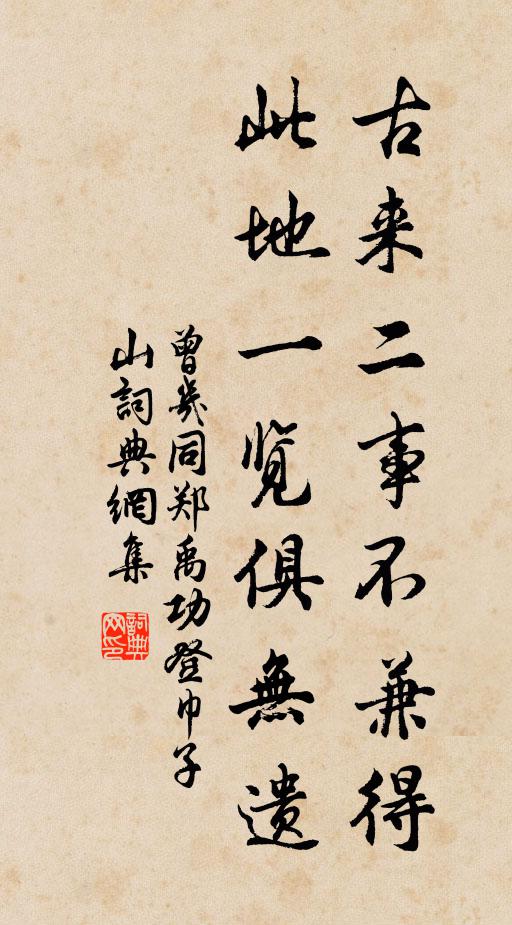 古来二事不兼得
此地一览俱無遗
曾幾同郑禹功登巾子
山詞典網集
詞典网印